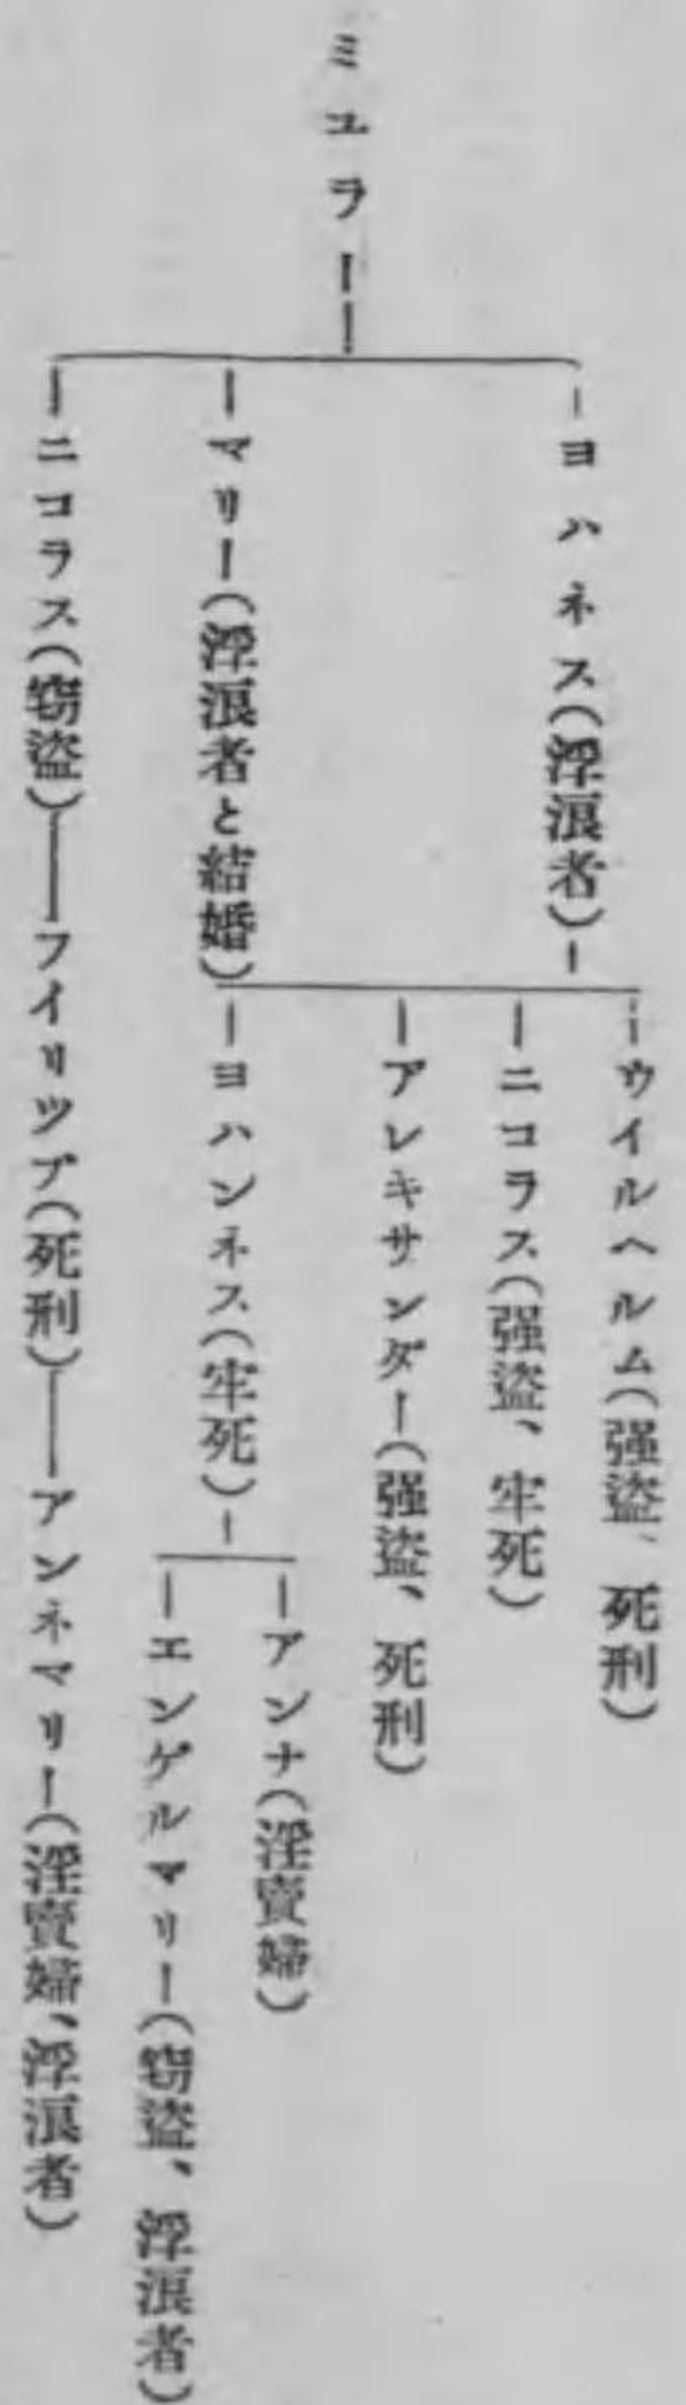 ミユラー
ヨハネス(浮浪者)
ウイルヘルム(强盜、死刑)
ニコラス(强盜、牢死)
アレキサンダー(强盜、死刑)
マリー(浮浪者と結婚)
ヨハンネス(牢死)
アンナ(淫賣婦)
エンゲルマリー(窃盜、浮浪者)
ニコラス(窃盜)——フイリツプ(死刑)——アンネマリー(淫賣婦、浮浪者)